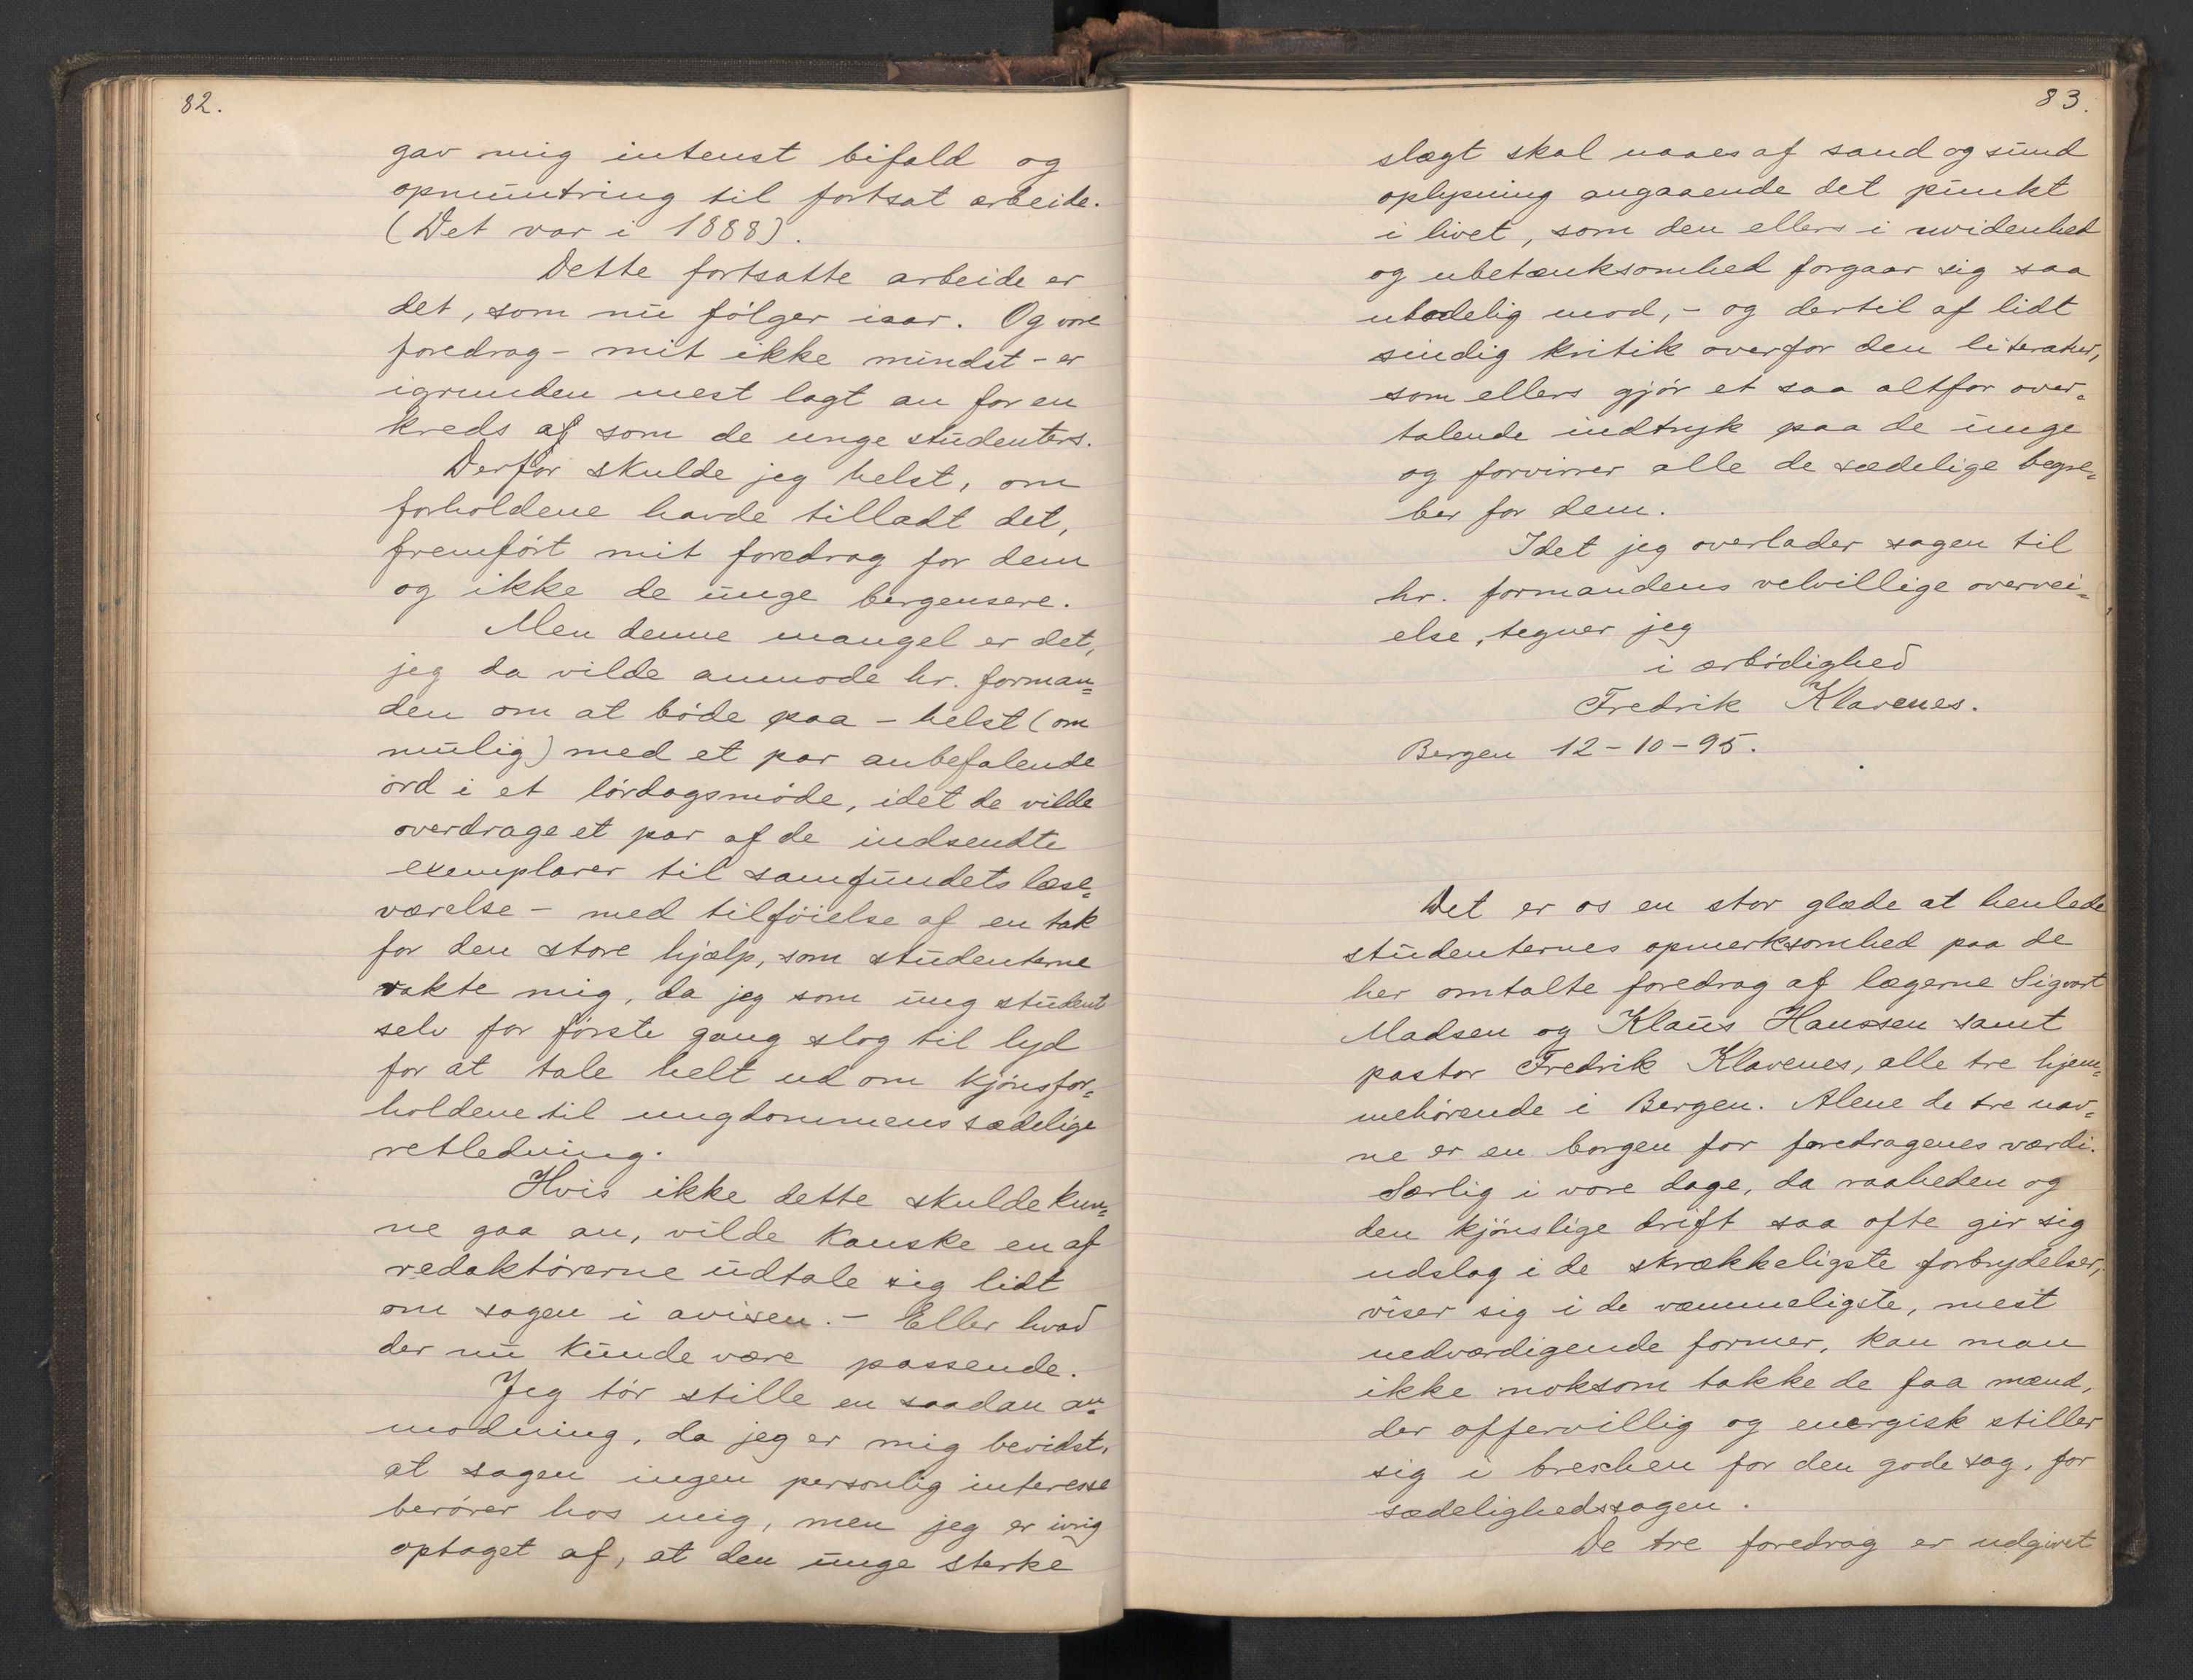 82.
gav mig intenst bifald og
opmuntring til fortsat arbeide.
(Det var i 1888).
Dette fortsatte arbeide er
det, som nu følger iaar. Og vore
foredrag - mit ikke mindst - er
igrunden mest lagt an for en
kreds af som de unge studenters.
Derfor skulde jeg helst, om
forholdene havde tilladt det,
fremført mit foredrag for dem
og ikke de unge bergensere.
Men denne mangel er det,
jeg da vilde anmode hr. forman=
den om at bøde paa - helst (om
mulig) med et par anbefalende
ord i et lørdagsmøde, idet de vilde
overdrage et par af de indsendte
exemplarer til samfundets læse=
værelse - med tilføielse af en tak
for den store hjælp, som studenterne
rakte mig, da jeg som ung student
selv for første gang slog til lyd
for at tale helt ud om kjønsfor=
holdene til ungdommens sædelige
retledning.
Hvis ikke dette skulde kun=
ne gaa an, vilde kanske en af
redaktørerne udtale sig lidt
om sagen i avisen. - Eller hvad
der nu kunde være passende.
Jeg tør stille en saadan an=
modning, da jeg er mig bevidst,
at sagen ingen personlig interesse
berører hos mig, men jeg er ivrig
optaget af, at den unge sterke
83.
slægt skal naaes af sand og sund
oplysning angaaende det punkt
i livet, som den ellers i uvidenhed
og ubetænksomhed forgaar sig saa
utædelig mod, - og dertil af lidt
sindig kritik overfor den literatur,
som ellers gjør et saa altfor over=
talende indtryk paa de unge
og forvirrer alle de sædelige begre=
ber for dem.
Idet jeg overlader sagen til
hr. formandens velvillige overvei=
else, tegner jeg
i ærbødighed
Fredrik Klavenes.
Bergen 12-10-95.
Det er os en stor glæde at henlede
studenternes opmerksomhed paa de
her omtalte foredrag af lægerne Sigvart
Madsen og Klaus Hanssen samt
pastor Fredrik Klavenes, alle tre hjem=
mehørende i Bergen. Alene de tre nav=
ne er en borgen for foredragenes værdi.
Særlig i vore dage, da raaheden og
den kjønslige drift saa ofte gir sig
udslag i de skrækkeligste forbrydelser,
viser sig i de væmmeligste, mest
nedværdigende former, kan man
ikke noksom takke de faa mænd,
der offervillig og energisk stiller
sig i breschen for den gode sag, for
sædelighedssagen.
De tre foredrag er udgivet